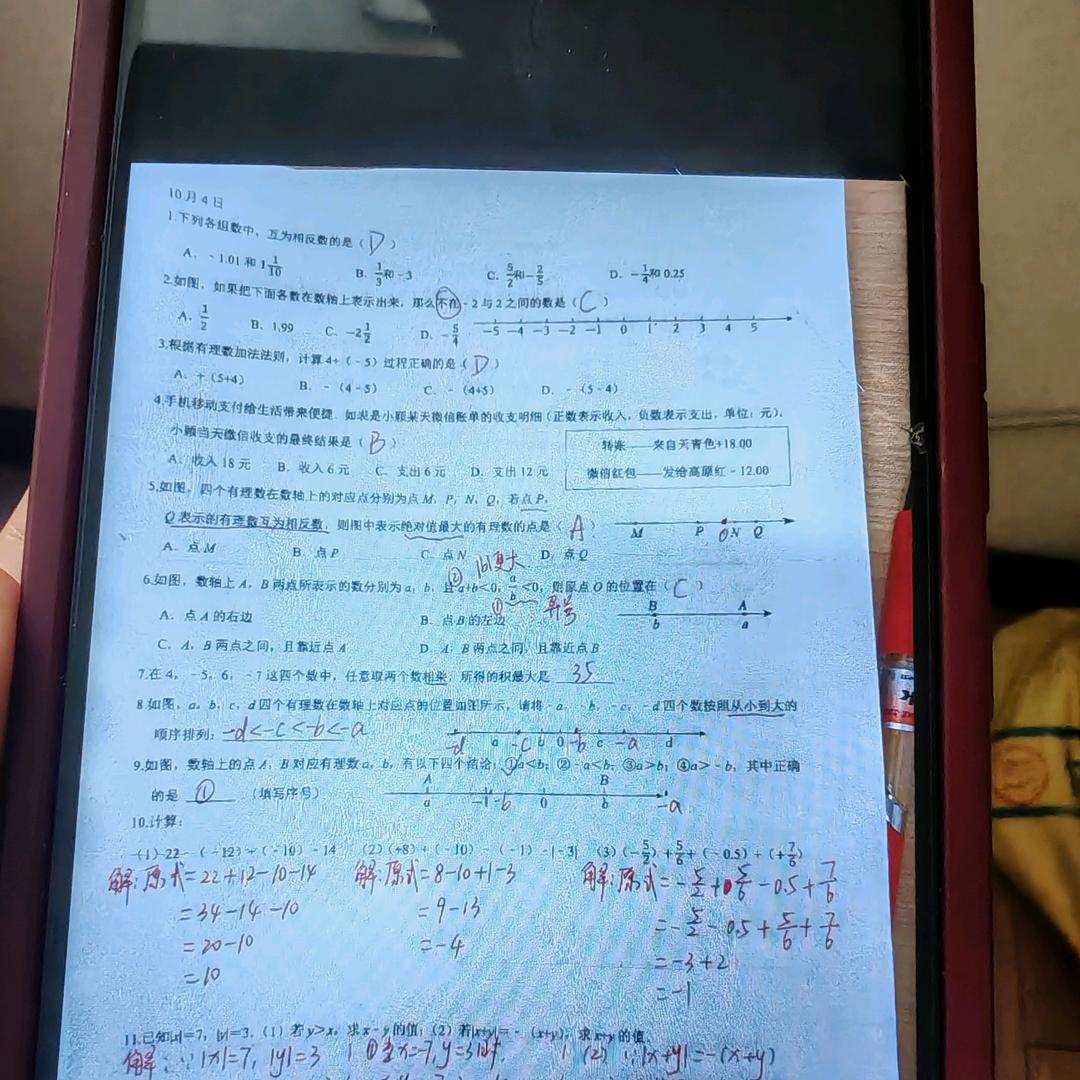 10月4日
1.下列各组数中，互为相反数的是（ D ）
A. -1.01和1 1/10 B. 1/3和-3 C. 5/2和-2/5 D. -1/4和0.25
2.如图，如果把下面各数在数轴上表示出来，那么不在-2与2之间的数是（ C ）
A. 1/2 B. 1.99 C. -2 1/2 D. -5/4 -5 -4 -3 -2 -1 0 1 2 3 4 5
3.根据有理数加法法则，计算4+（-5）过程正确的是（ D ）
A. +（5+4） B. -（4-5） C. -（4+5） D. -（5-4）
4.手机移动支付给生活带来便捷．如表是小颖某天微信账单的收支明细（正数表示收入，负数表示支出，单位：元），
小颖当天微信收支的最终结果是（ B ） 转账——来自天青色+18.00
A. 收入18元 B. 收入6元 C. 支出6元 D. 支出12元 微信红包——发给高原红-12.00
5.如图，四个有理数在数轴上的对应点分别为点M，P，N，Q，若点P，
Q表示的有理数互为相反数，则图中表示绝对值最大的有理数的点是（ A ） M P O N Q
A. 点M B. 点P C. 点N D. 点Q
② |b|更大
6.如图，数轴上A，B两点所表示的数分别为a，b，且a+b<0，a/b<0，则原点O的位置在（ C ）
① 异号
A. 点A的右边 B. 点B的左边 B A b a
C. A，B两点之间，且靠近点A D. A，B两点之间，且靠近点B
7.在4，-5，6，-7这四个数中，任意取两个数相乘，所得的积最大是 35
8.如图，a，b，c，d四个有理数在数轴上对应点的位置如图所示，请将-a，-b，-c，-d四个数按照从小到大的
顺序排列：-d<-c<-b<-a -d a -c b 0 -b c -a d
9.如图，数轴上的点A，B对应有理数a，b，有以下四个结论：①a<b；②-a<b；③a>b；④a>-b，其中正确
的是 ① （填写序号） A B a -1 -b 0 b -a
10.计算：
(1) 22-(-12)+(-10)-14 (2) (+8)+(-10)-(-1)-|-3| (3) (-5/2)+5/6+(-0.5)+(+7/6)
解：原式=22+12-10-14 解：原式=8-10+1-3 解：原式=-5/2+5/6-0.5+7/6
=34-14-10 =9-13 =-5/2-0.5+5/6+7/6
=20-10 =-4 =-3+2
=10 =-1
11.已知|x|=7，|y|=3．（1）若y>x，求x-y的值；（2）若|x+y|=-（x+y），求x+y的值
解：∵|x|=7, |y|=3 ①当x=-7, y=3时， (2) ∵|x+y|=-(x+y)